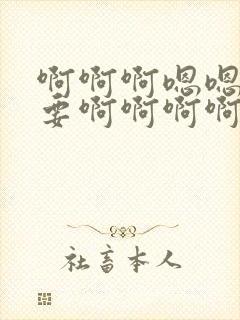 啊啊啊嗯嗯
要啊啊啊啊
社畜本人